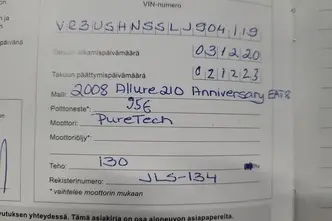 VIN-numero
VR3USHNSSLJ904119
Takuun alkamispäivämäärä 031220
Takuun päättymispäivämäärä 021223
Malli: 2008 Allure 210 Anniversary EAT8
Polttoneste*: 95E
Moottori: PureTech
Moottoriöljy*:
Teho: 130
Rekisterinumero: JLS-134
* vaihtelee moottorin mukaan
yhteydessä. Tämä asiakirja on osa ajoneuvon asiapapereita.